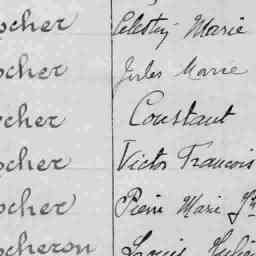 ocher Célestin Marie
ocher Jules Marie
ocher Constant
ocher Victor Francois
ocher Pierre Marie
ocheron Louis